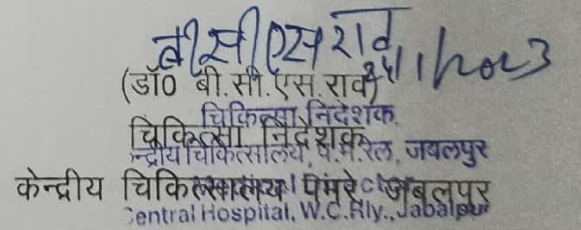 बीसीएस राव
(डॉ0 बी.सी.एस.राव)
चिकित्सा निदेशक.
चिकित्सा निदेशक
केन्द्रीय चिकित्सालय, प.म.रेल, जबलपुर
केन्द्रीय चिकित्सालय पमरे जबलपुर
Central Hospital, W.C.Rly., Jabalpur